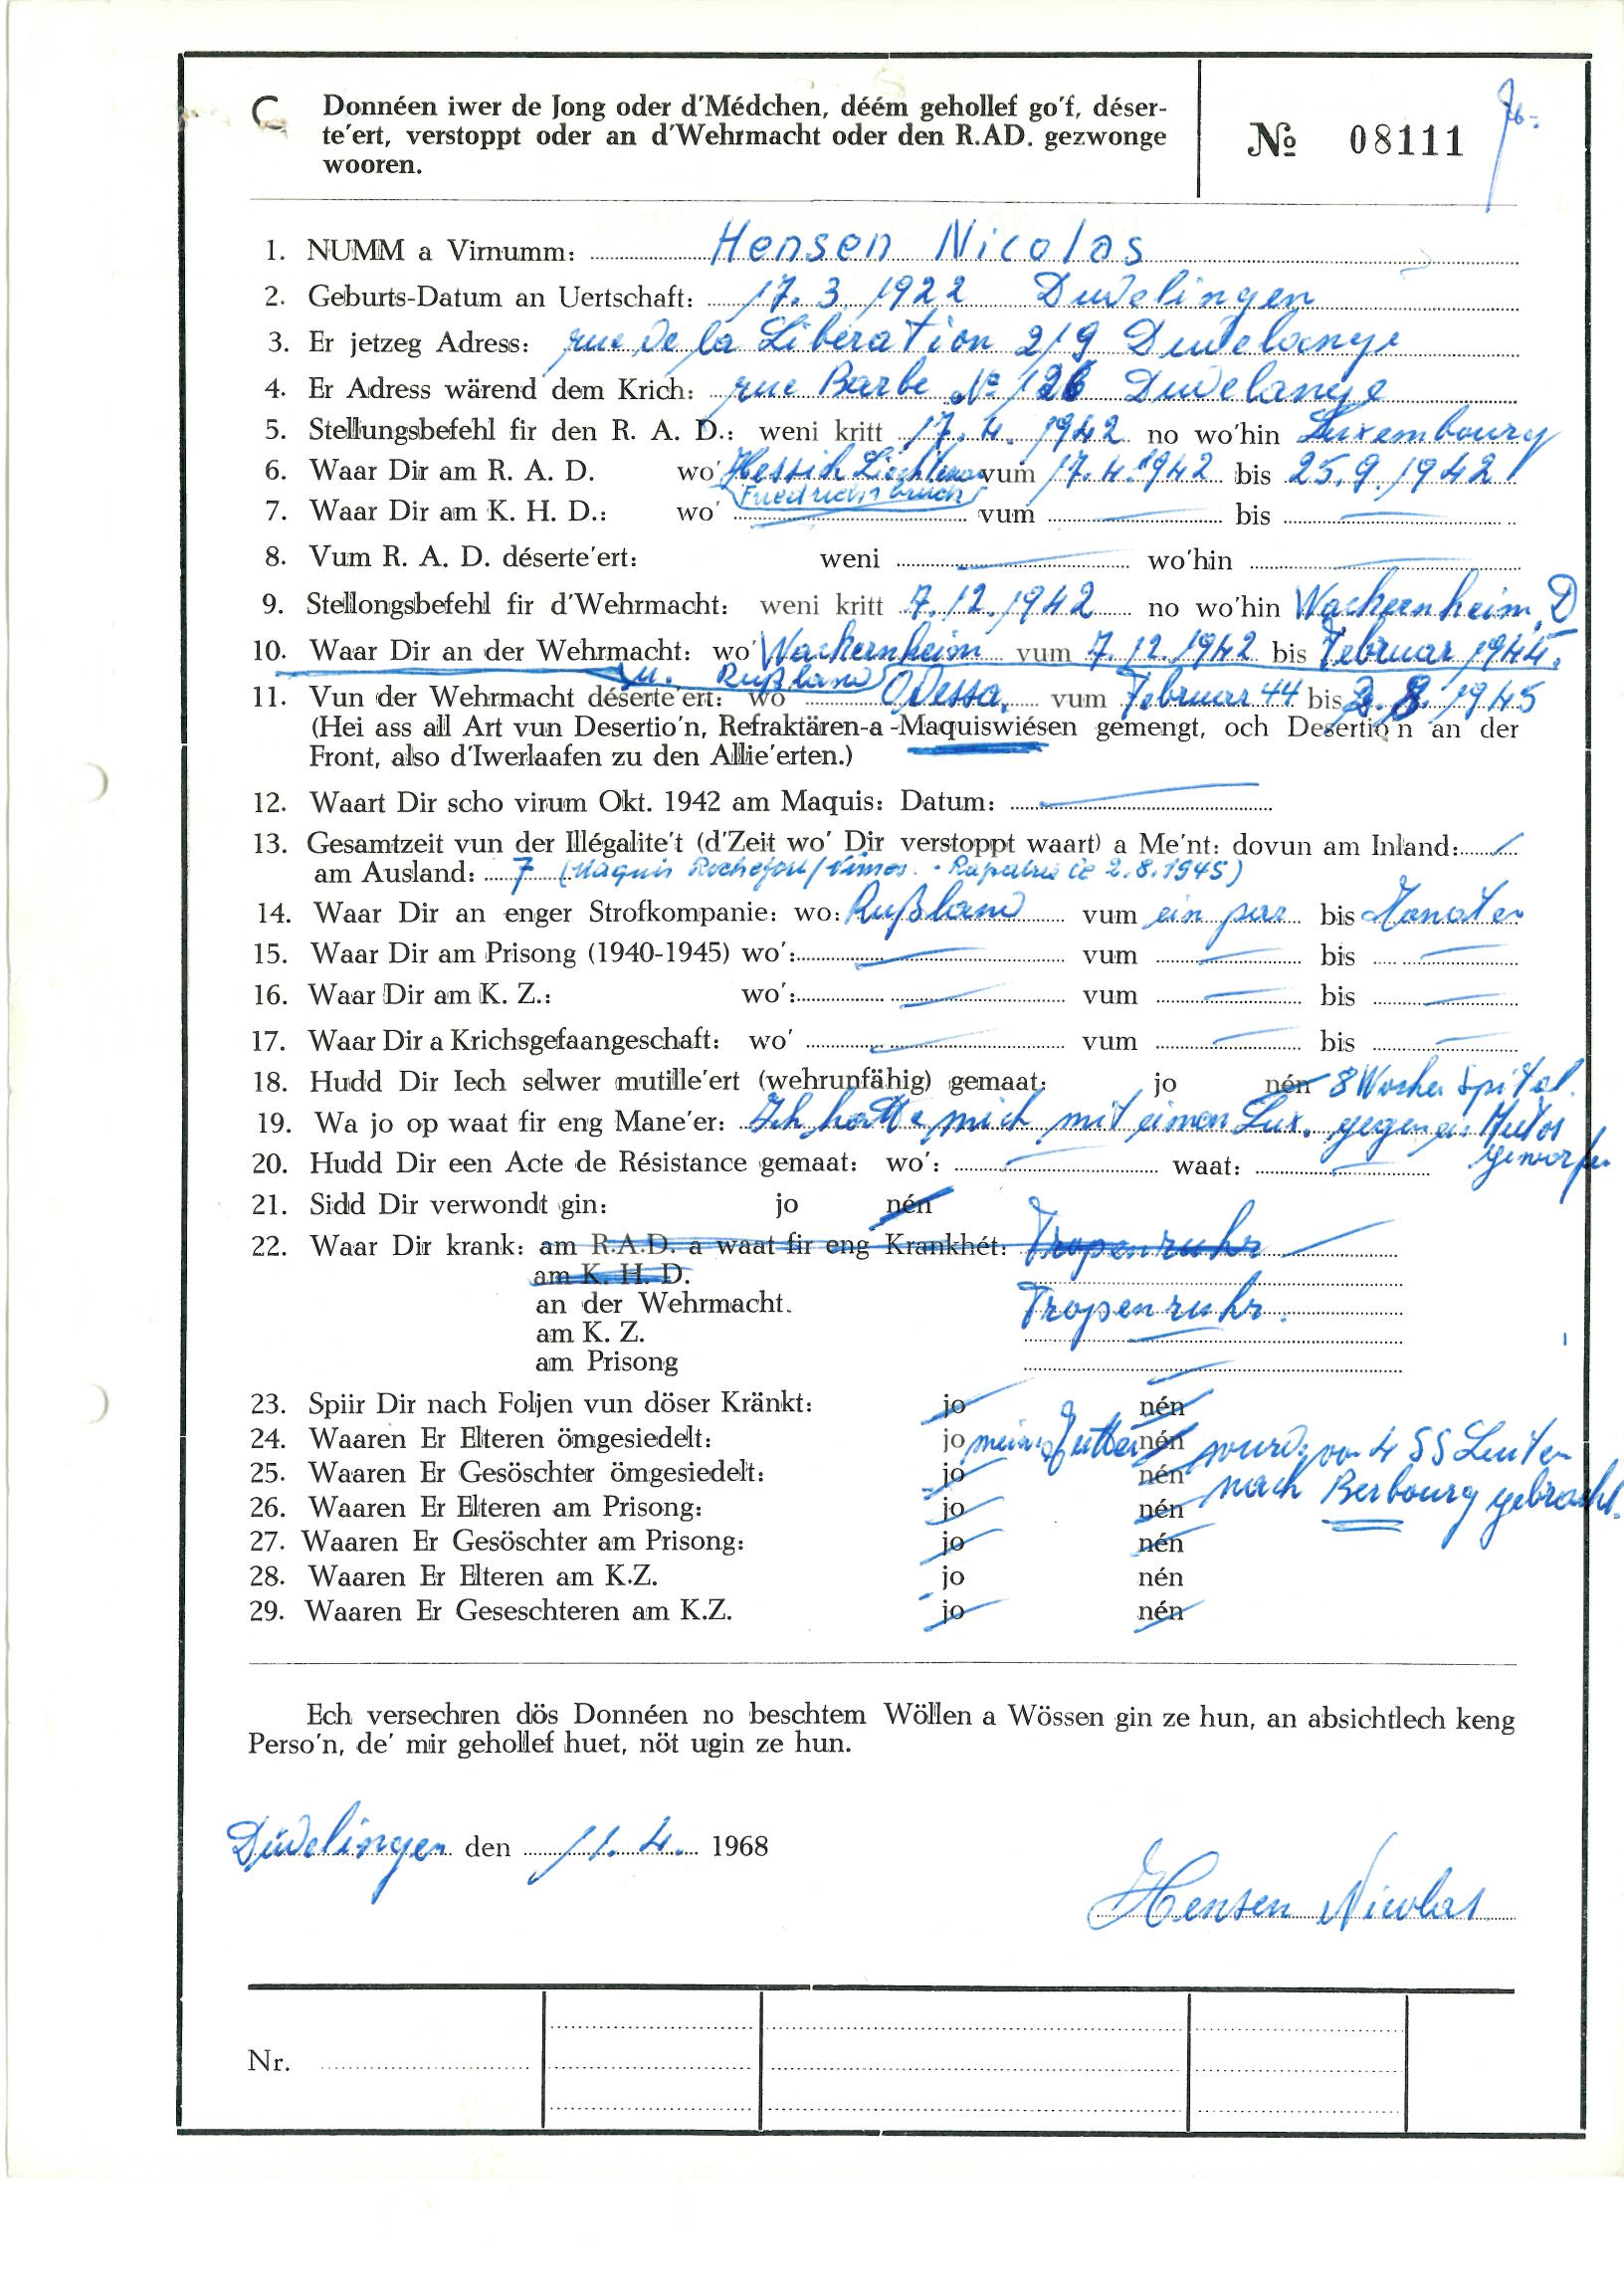 C Donnéen iwer de Jong oder d'Médchen, déém gehollef go'f, déser-
te'ert, verstoppt oder an d'Wehrmacht oder den R.AD. gezwonge
wooren.
№ 08111
1. NUMM a Virnumm: Hensen Nicolas
2. Geburts-Datum an Uertschaft: 17.3.1922 Düdelingen
3. Er jetzeg Adress: rue de la Libération 219 Dudelange
4. Er Adress wärend dem Krich: rue Barbe № 126 Dudelange
5. Stellungsbefehl fir den R. A. D.: weni kritt 17.4.1942 no wo'hin Luxembourg
6. Waar Dir am R. A. D. wo' Hessich Lichtenau vum 17.4.1942 bis 25.9.1942
Friedrichsbruch
7. Waar Dir am K. H. D.: wo' vum bis
8. Vum R. A. D. déserte'ert: weni wo'hin
9. Stellongsbefehl fir d'Wehrmacht: weni kritt 7.12.1942 no wo'hin Wackernheim D
10. Waar Dir an der Wehrmacht: wo' Wackernheim vum 7.12.1942 bis Februar 1944.
u. Rußland
11. Vun der Wehrmacht déserte'ert: wo Odessa, vum Februar 44 bis 2.8.1945
(Hei ass all Art vun Desertio'n, Refraktären-a-Maquiswiésen gemengt, och Desertio'n an der
Front, also d'Iwerlaafen zu den Allie'erten.)
12. Waart Dir scho virum Okt. 1942 am Maquis: Datum:
13. Gesamtzeit vun der Illégalite't (d'Zeit wo' Dir verstoppt waart) a Me'nt: dovun am Inland:
am Ausland: 7 (Maquis Rochefort/Nimes. - Rapatrié le 2.8.1945)
14. Waar Dir an enger Strofkompanie: wo: Rußland vum ein paar bis Monaten
15. Waar Dir am Prisong (1940-1945) wo': vum bis
16. Waar Dir am K. Z.: wo': vum bis
17. Waar Dir a Krichsgefaangeschaft: wo' vum bis
18. Hudd Dir Iech selwer mutille'ert (wehrunfähig) gemaat: jo nén 8 Wochen Spital.
19. Wa jo op waat fir eng Mane'er: Ich hatte mich mit einen Lux. gegen ein Autos
geworfen
20. Hudd Dir een Acte de Résistance gemaat: wo': waat:
21. Sidd Dir verwondt gin: jo nén
22. Waar Dir krank: am R.A.D. a waat fir eng Krankhét: Tropenruhr
am K. H. D.
an der Wehrmacht. Tropenruhr.
am K. Z.
am Prisong
23. Spiir Dir nach Foljen vun döser Kränkt: jo nén
24. Waaren Er Elteren ömgesiedelt: jo meine nén wurde von 4 SS Leuten
25. Waaren Er Gesöschter ömgesiedelt: jo nén nach Berbourg gebracht.
26. Waaren Er Elteren am Prisong: jo nén
27. Waaren Er Gesöschter am Prisong: jo nén
28. Waaren Er Elteren am K.Z. jo nén
29. Waaren Er Geseschteren am K.Z. jo nén
Ech versechren dös Donnéen no beschtem Wöllen a Wössen gin ze hun, an absichtlech keng
Perso'n, de' mir gehollef huet, nöt ugin ze hun.
Düdelingen den 11.4. 1968
Hensen Nicolas
Nr.